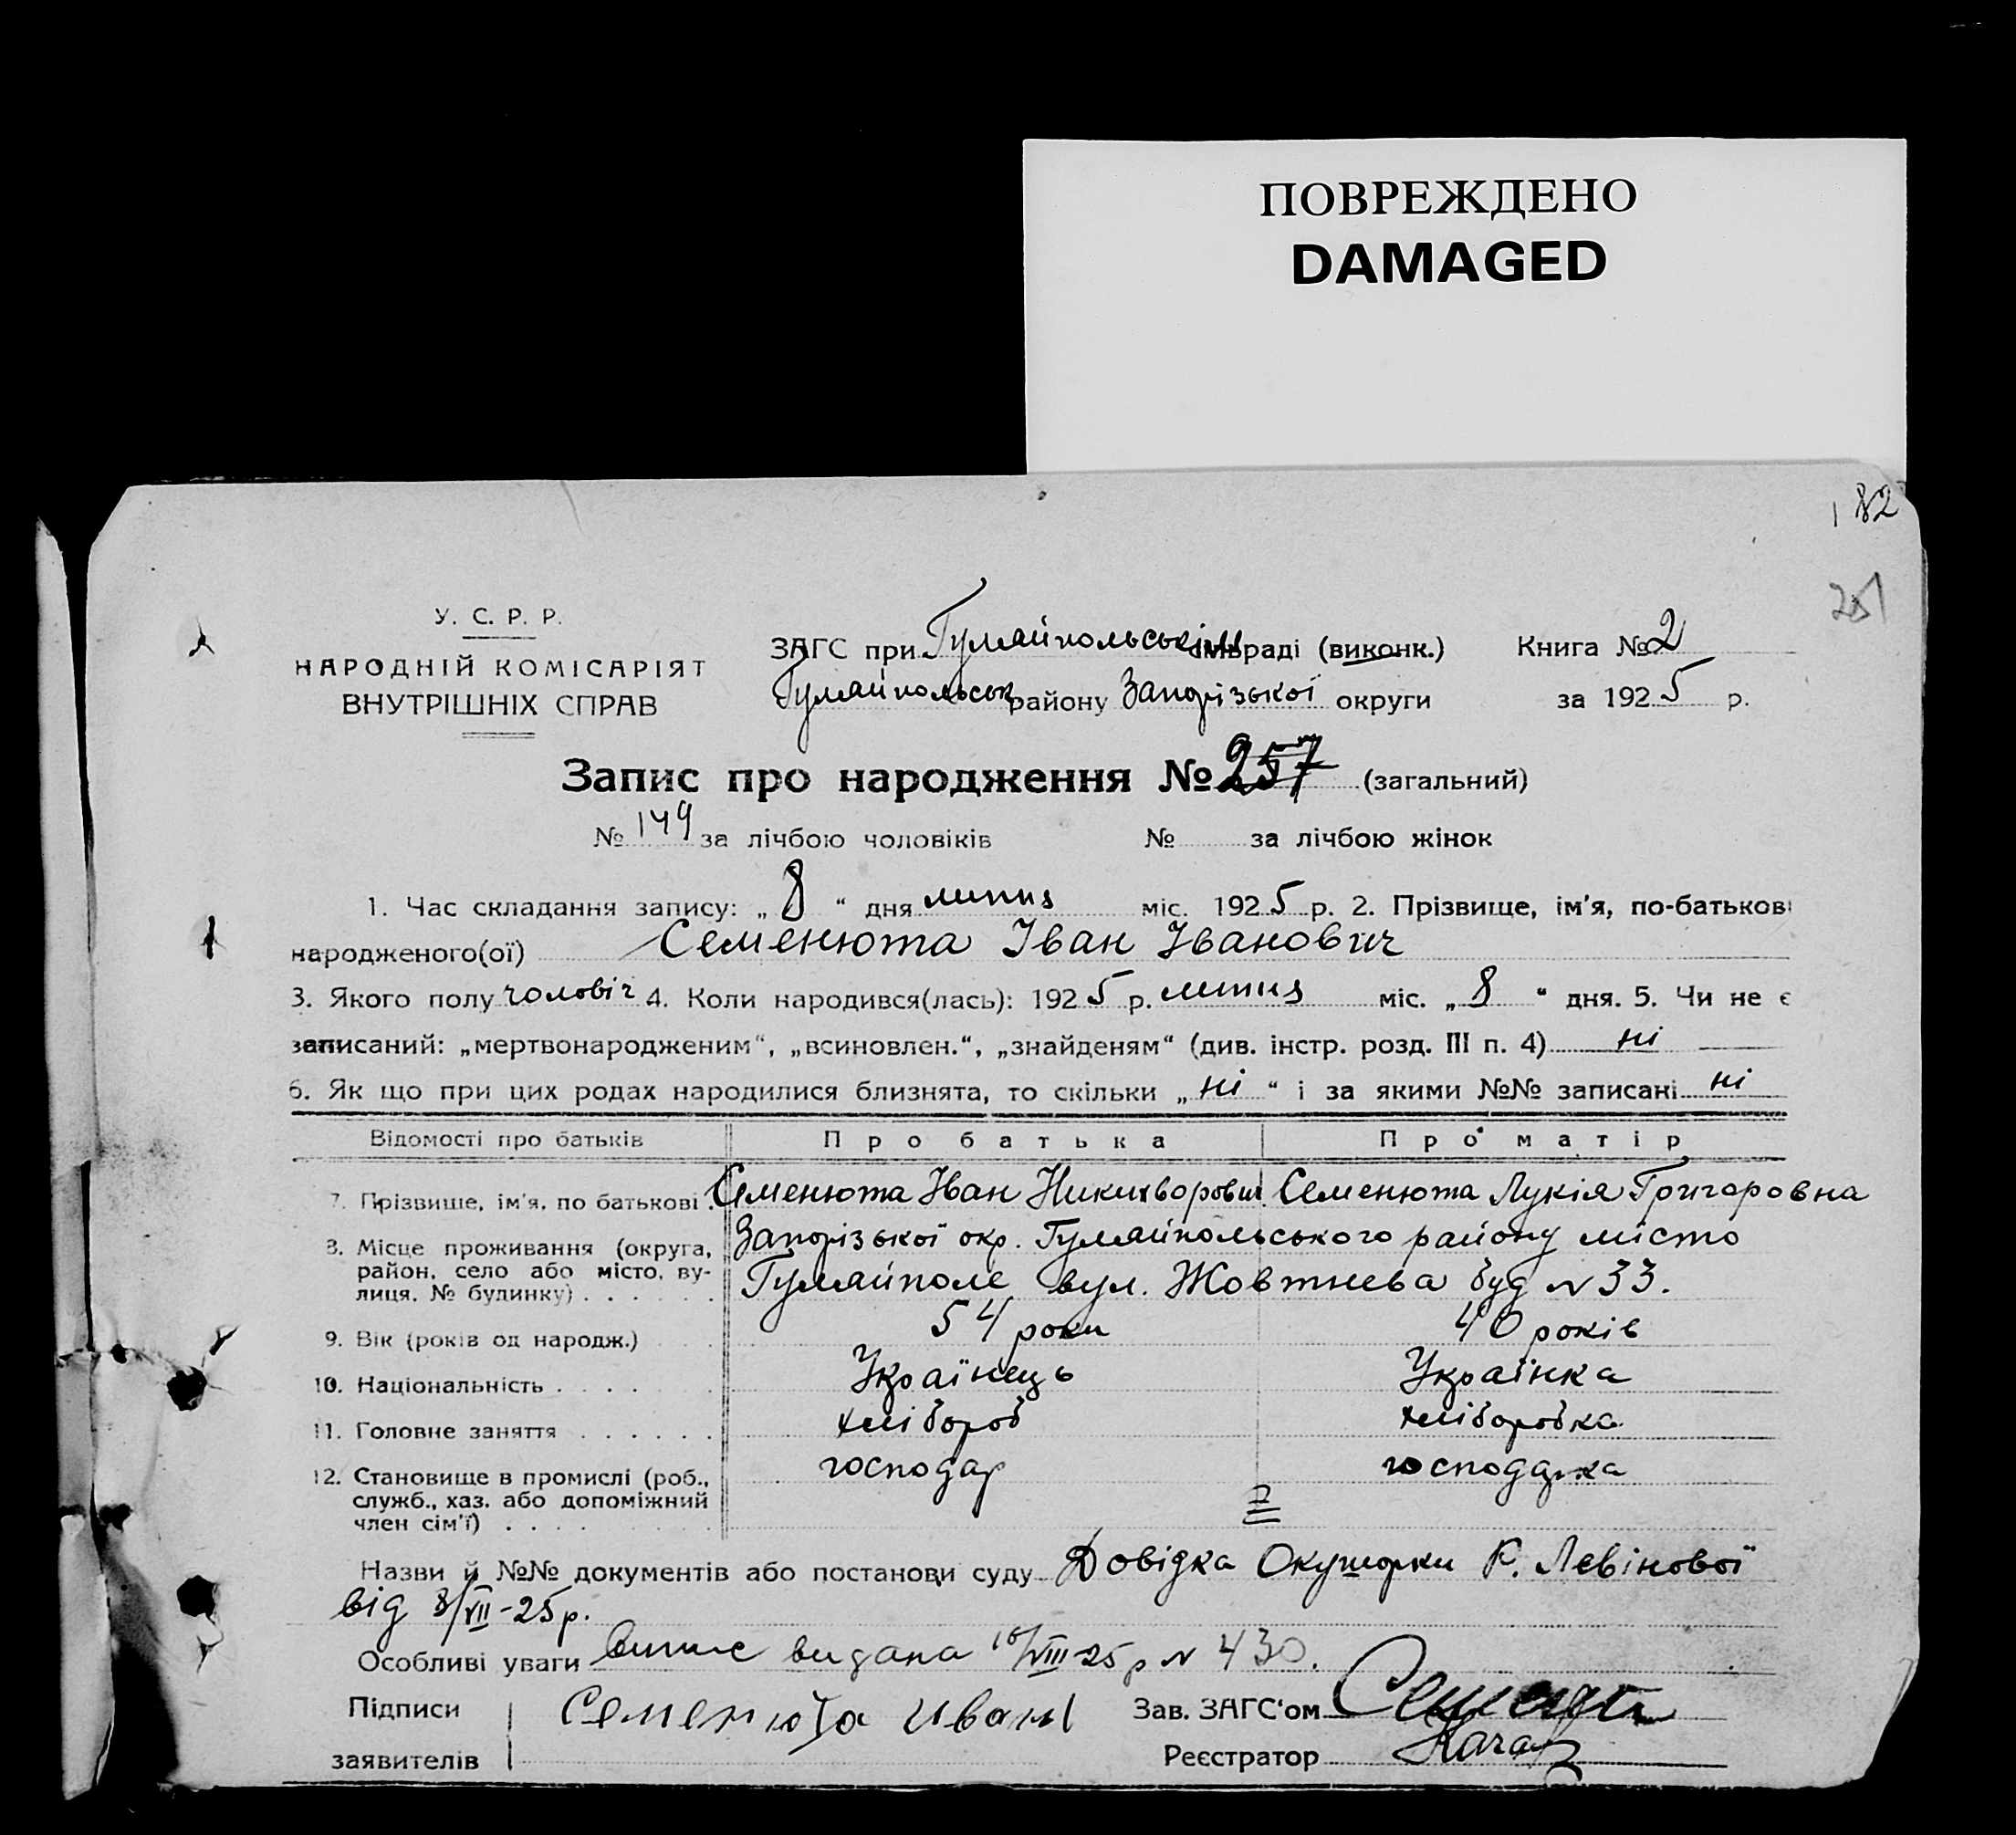 ПОВРЕЖДЕНО
DAMAGED
182
251
У. С. Р. Р.
НАРОДНІЙ КОМІСАРІЯТ
ВНУТРІШНІХ СПРАВ
ЗАГС при Гуляйпольській міськраді (виконк.) Книга № 2
Гуляйпольськ району Запорізької округи за 1925 р.
Запис про народження № 257 (загальний)
№ 149 за лічбою чоловіків № за лічбою жінок
1. Час складання запису: „ 8 “ дня липня міс. 1925 р. 2. Прізвище, ім'я, по-батькові
народженого(ої) Семенюта Іван Іванович
3. Якого полу чоловіч 4. Коли народився(лась): 1925 р. липня міс. „ 8 “ дня. 5. Чи не є
записаний: „мертвонародженим“, „всиновлен.“, „знайденям“ (див. інстр. розд. III п. 4) ні
6. Як що при цих родах народилися близнята, то скільки „ ні “ і за якими №№ записані ні
Відомості про батьків Про батька Про матір
7. Прізвище, ім'я, по батькові . Семенюта Іван Никихворович Семенюта Лукія Григоровна
8. Місце проживання (округа, район, село або місто, вулиця, № будинку) . . . . . . Запорізької окр. Гуляйпольського району місто
Гуляйполе вул. Жовтнева буд № 33.
9. Вік (років од народж.) 54 роки 40 років
10. Національність . . . . . . Українець Українка
11. Головне заняття . . . . . . хлібороб хліборобка
12. Становище в промислі (роб., служб., хаз. або допоміжний член сім'ї) . . . . господар господарка
Назви й №№ документів або постанови суду Довідка Окушорки Р. Левінової
від 8/VII-25р.
Особливі уваги випис видана 10/VIII-25р № 430.
Підписи Семенюта Иван Зав. ЗАГС'ом
заявителів Реєстратор